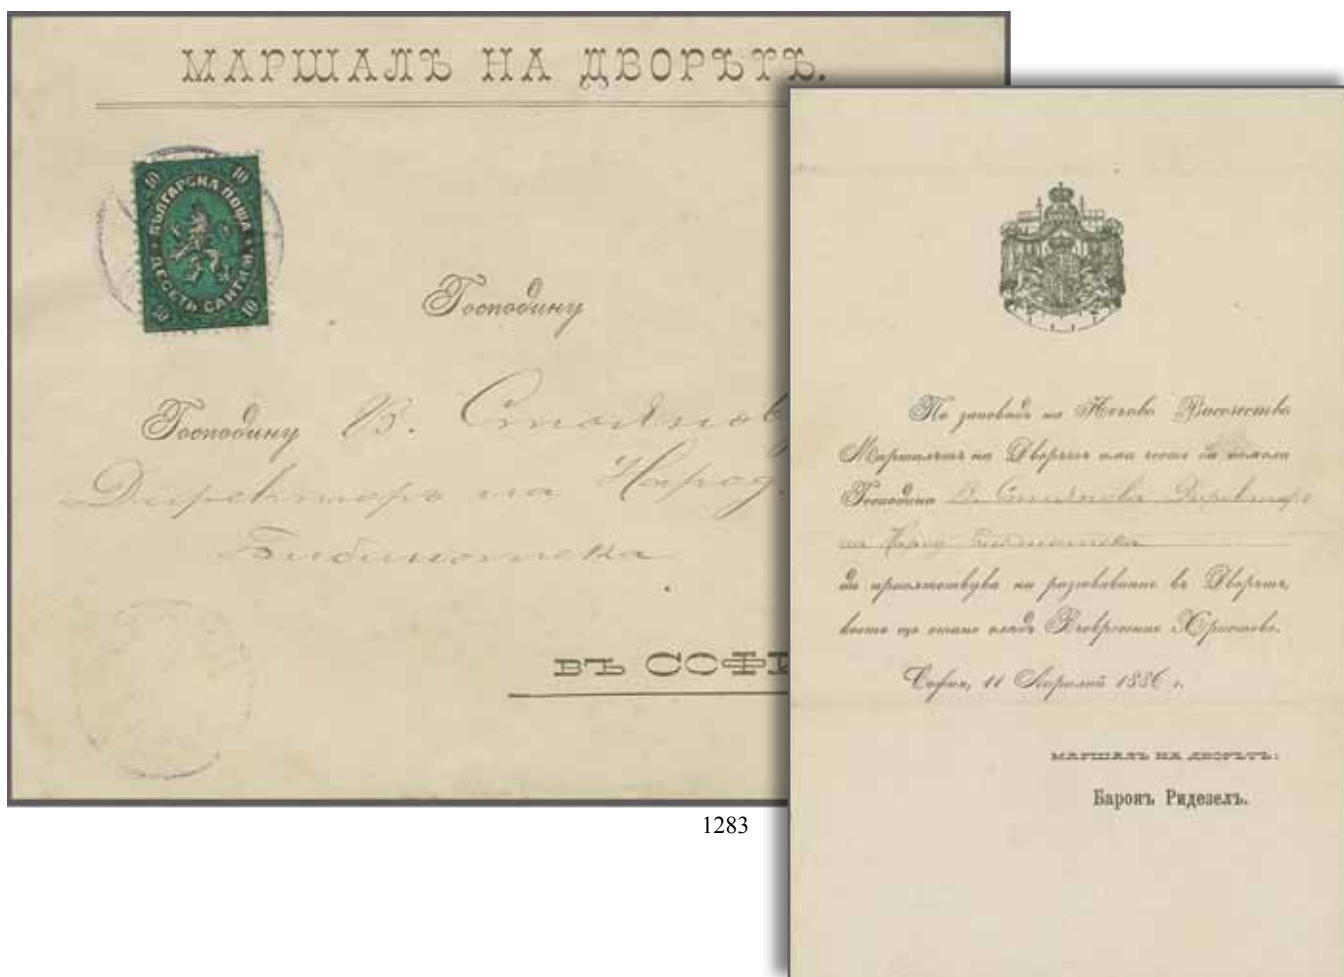 МАРШАЛЪ НА ДВОРЪТЪ.
10 10
БЪЛГАРСКА ПОЩА
ДЕСЕТЬ САНТИМ.
10 10
Господину
Господину В. Стоянов
Директоръ на Народ.
Библиотека
ВЪ СОФИ
1283
По заповѣдь на Негово Височество
Маршалътъ на Дворътъ има честь да помоли
Господина В. Стоянова Директоръ
на Народ Библиотека
да присѫтствува на разговяванье въ Дворътъ,
което ще стане слѣдъ Възкресение Христово.
София, 11 Априлий 1886 г.
МАРШАЛЪ НА ДВОРЪТЪ:
Баронъ Ридезелъ.